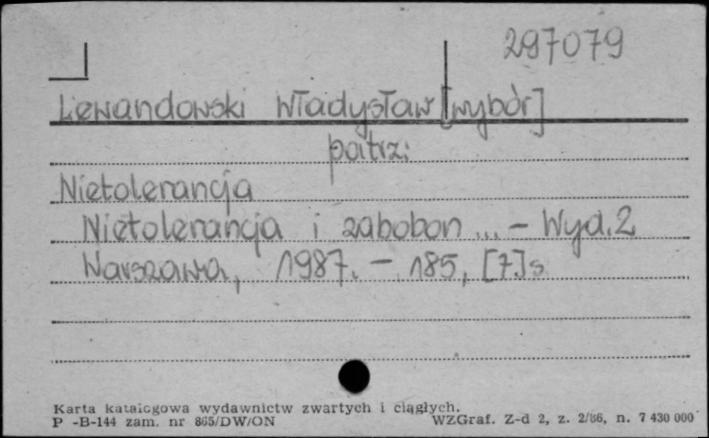 297079
Lewandowski Władysław [wybór]
patrz:
Nietolerancja
Nietolerancja i zabobon ... - Wyd. 2
Warszawa, 1987. - 185, [7] s
Karta katalogowa wydawnictw zwartych i ciągłych.
P -B-144 zam. nr 865/DW/ON WZGraf. Z-d 2, z. 2/86, n. 7 430 000